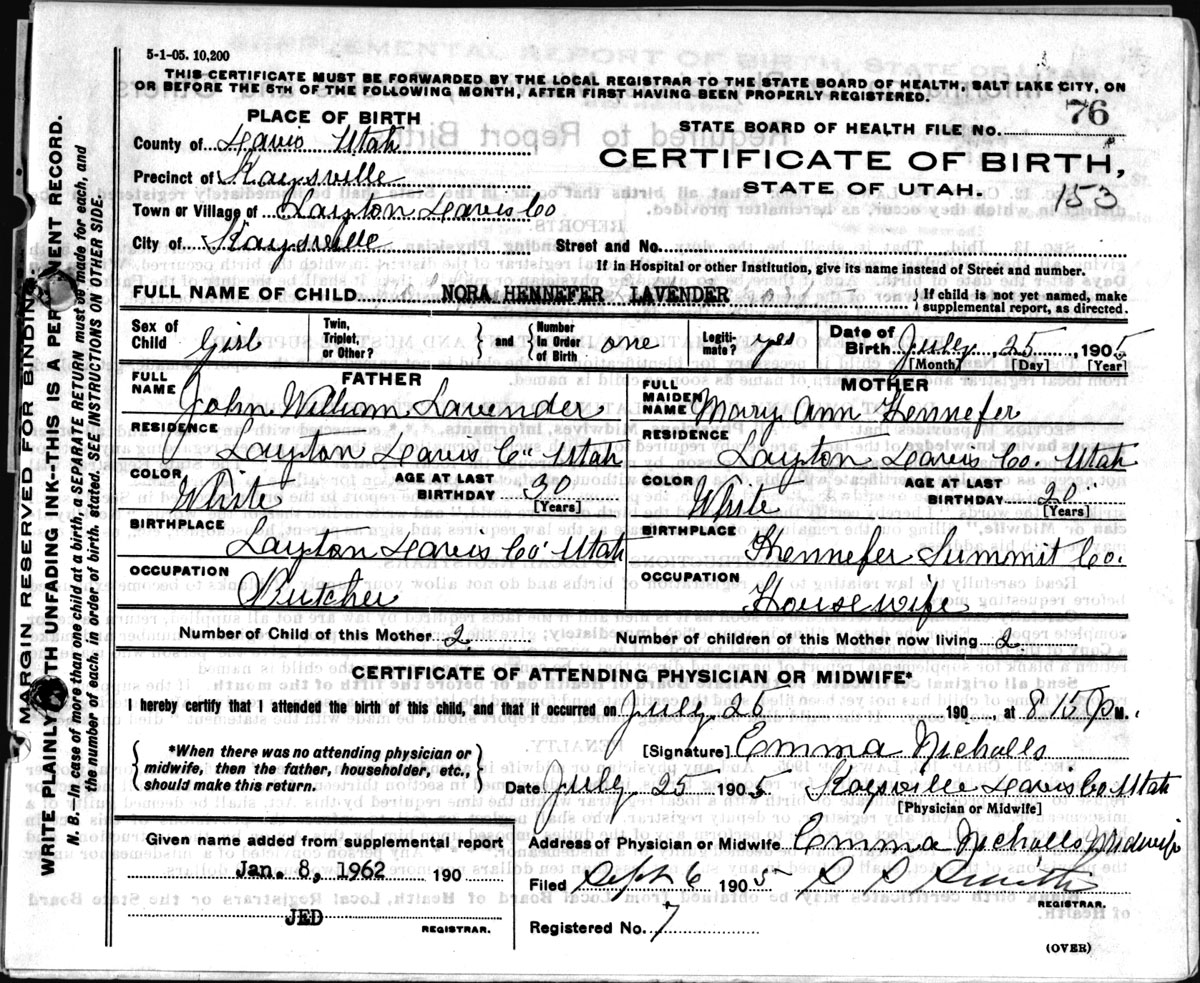 5-1-05. 10,200
THIS CERTIFICATE MUST BE FORWARDED BY THE LOCAL REGISTRAR TO THE STATE BOARD OF HEALTH, SALT LAKE CITY, ON
OR BEFORE THE 5TH OF THE FOLLOWING MONTH, AFTER FIRST HAVING BEEN PROPERLY REGISTERED.
PLACE OF BIRTH
STATE BOARD OF HEALTH FILE NO. 76
County of Davis Utah
CERTIFICATE OF BIRTH,
Precinct of Kaysville
STATE OF UTAH.
153
Town or Village of Layton Davis Co
City of Kaysville Street and No.
If in Hospital or other Institution, give its name instead of Street and number.
FULL NAME OF CHILD NORA HENNEFER LAVENDER { If child is not yet named, make
supplemental report, as directed.
Sex of Child Girl Twin, Triplet, or Other? } and { Number In Order of Birth one Legiti- mate? yes Date of Birth July 25, 1905
[Month] [Day] [Year]
FATHER MOTHER
FULL NAME John William Lavender FULL MAIDEN NAME Mary Ann Hennefer
RESIDENCE Layton Davis Co Utah RESIDENCE Layton Davis Co. Utah
COLOR White AGE AT LAST BIRTHDAY 30 [Years] COLOR White AGE AT LAST BIRTHDAY 20 [Years]
BIRTHPLACE Layton Davis Co Utah BIRTHPLACE Hennefer Summit Co.
OCCUPATION Butcher OCCUPATION Housewife
Number of Child of this Mother 2 Number of children of this Mother now living 2
CERTIFICATE OF ATTENDING PHYSICIAN OR MIDWIFE*
I hereby certify that I attended the birth of this child, and that it occurred on July 25 190 at 8 15 P M.
{ *When there was no attending physician or
midwife, then the father, householder, etc.,
should make this return. }
[Signature] Emma Nicholls
Date July 25 1905 Kaysville Davis Co. Utah
[Physician or Midwife]
Address of Physician or Midwife Emma Nicholls Midwife
Given name added from supplemental report
Jan. 8, 1962 190
JED
REGISTRAR.
Filed Sept 6 1905 Smith
REGISTRAR.
Registered No. 7
(OVER)
MARGIN RESERVED FOR BINDING.
WRITE PLAINLY WITH UNFADING INK--THIS IS A PERMANENT RECORD.
N. B. In case of more than one child at a birth, a SEPARATE RETURN must be made for each, and
the number of each, in order of birth, stated. SEE INSTRUCTIONS ON OTHER SIDE.